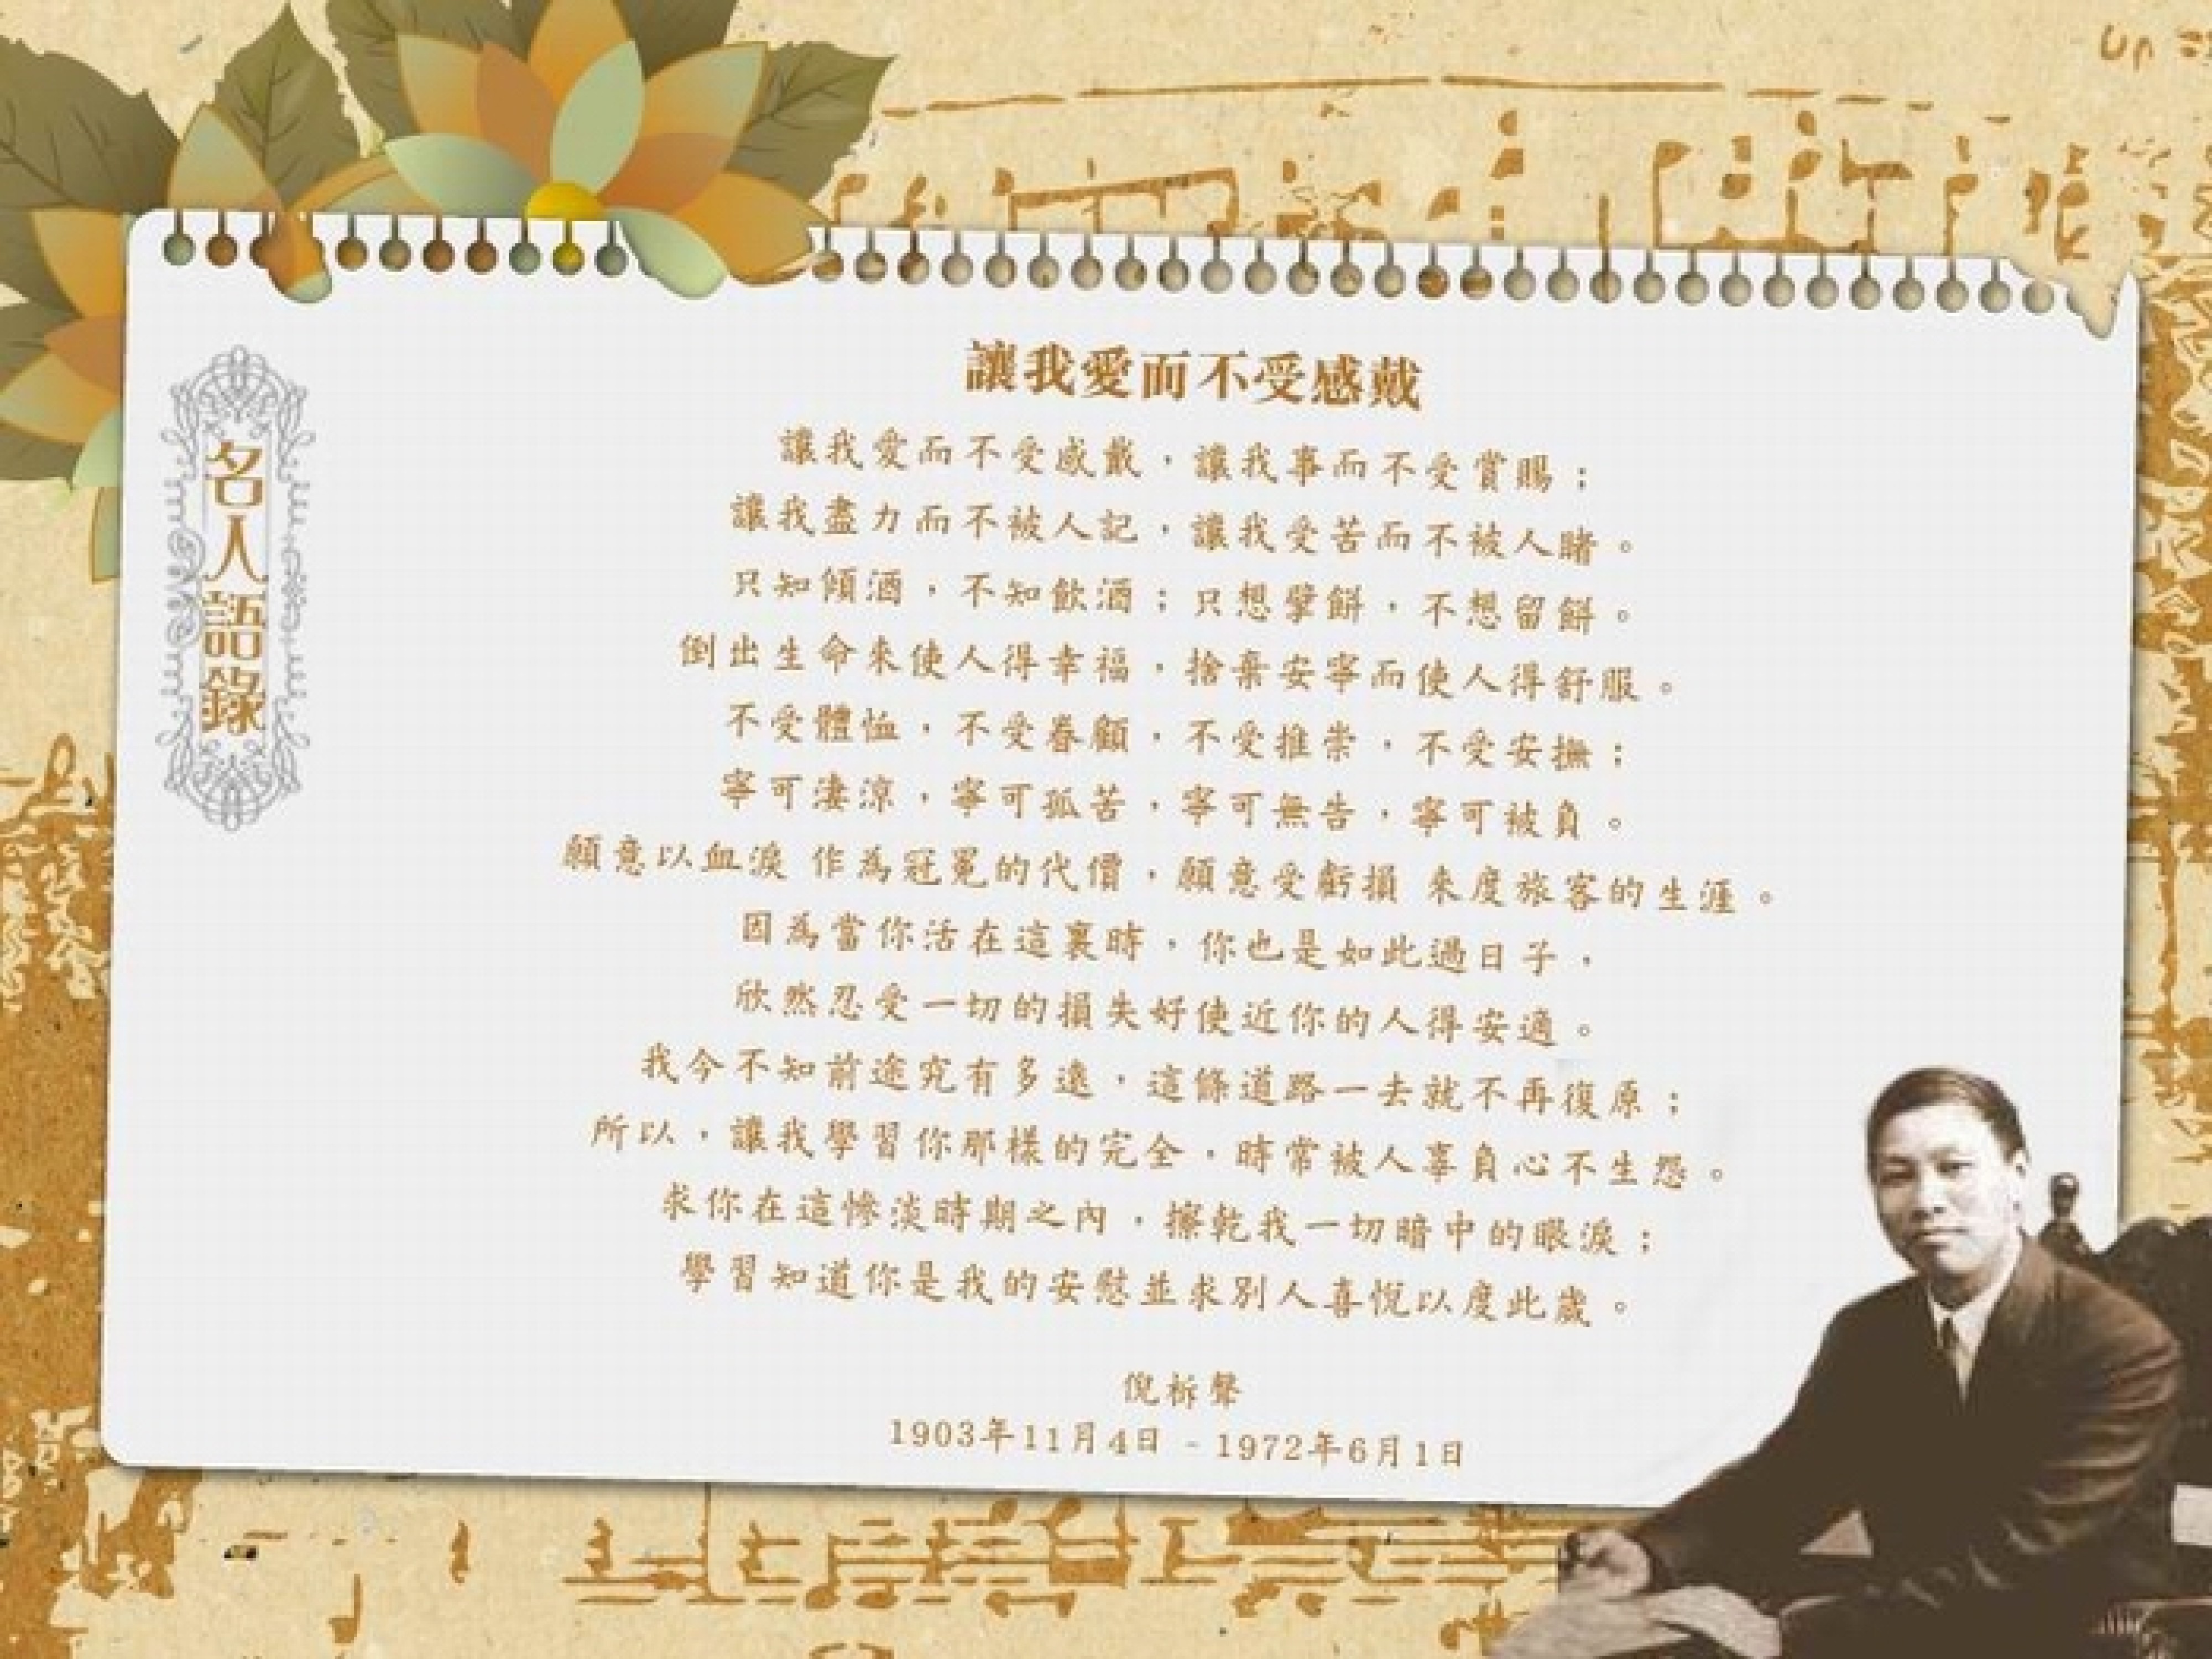 名人語錄
讓我愛而不受感戴
讓我愛而不受感戴，讓我事而不受賞賜；
讓我盡力而不被人記，讓我受苦而不被人睹。
只知傾酒，不知飲酒；只想擘餅，不想留餅。
倒出生命來使人得幸福，捨棄安寧而使人得舒服。
不受體恤，不受眷顧，不受推崇，不受安撫；
寧可淒涼，寧可孤苦，寧可無告，寧可被負。
願意以血淚 作為冠冕的代價，願意受虧損 來度旅客的生涯。
因為當你活在這裏時，你也是如此過日子，
欣然忍受一切的損失好使近你的人得安適。
我今不知前途究有多遠，這條道路一去就不再復原；
所以，讓我學習你那樣的完全，時常被人辜負心不生怨。
求你在這慘淡時期之內，擦乾我一切暗中的眼淚；
學習知道你是我的安慰並求別人喜悅以度此歲。
倪柝聲
1903年11月4日 - 1972年6月1日